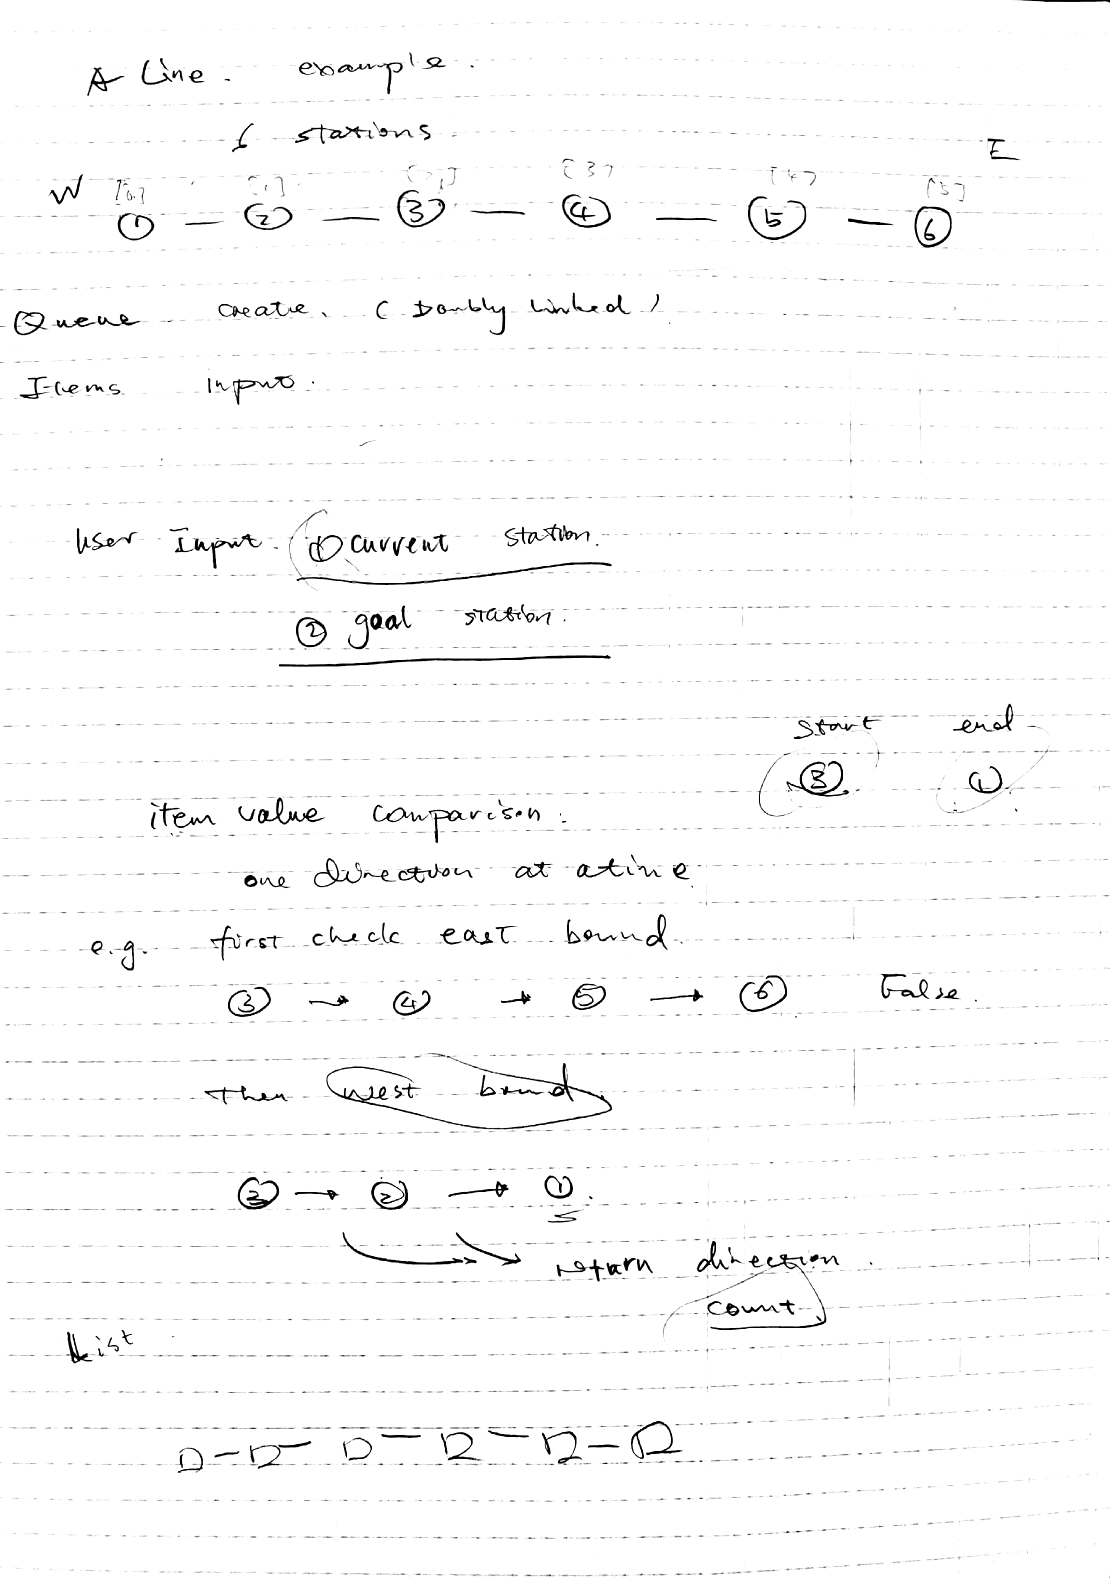 A Line. example.
6 stations.
E
W [0] [1] [2] [3] [4] [5]
① — ② — ③ — ④ — ⑤ — ⑥
Queue create. (Doubly linked)
Items input.
User Input. ① current station.
② goal station.
start end
③ ①
item value comparison:
one direction at a time
e.g. first check east bound.
③ → ④ → ⑤ → ⑥ False.
Then west bound.
③ → ② → ①.
return direction.
count.
List